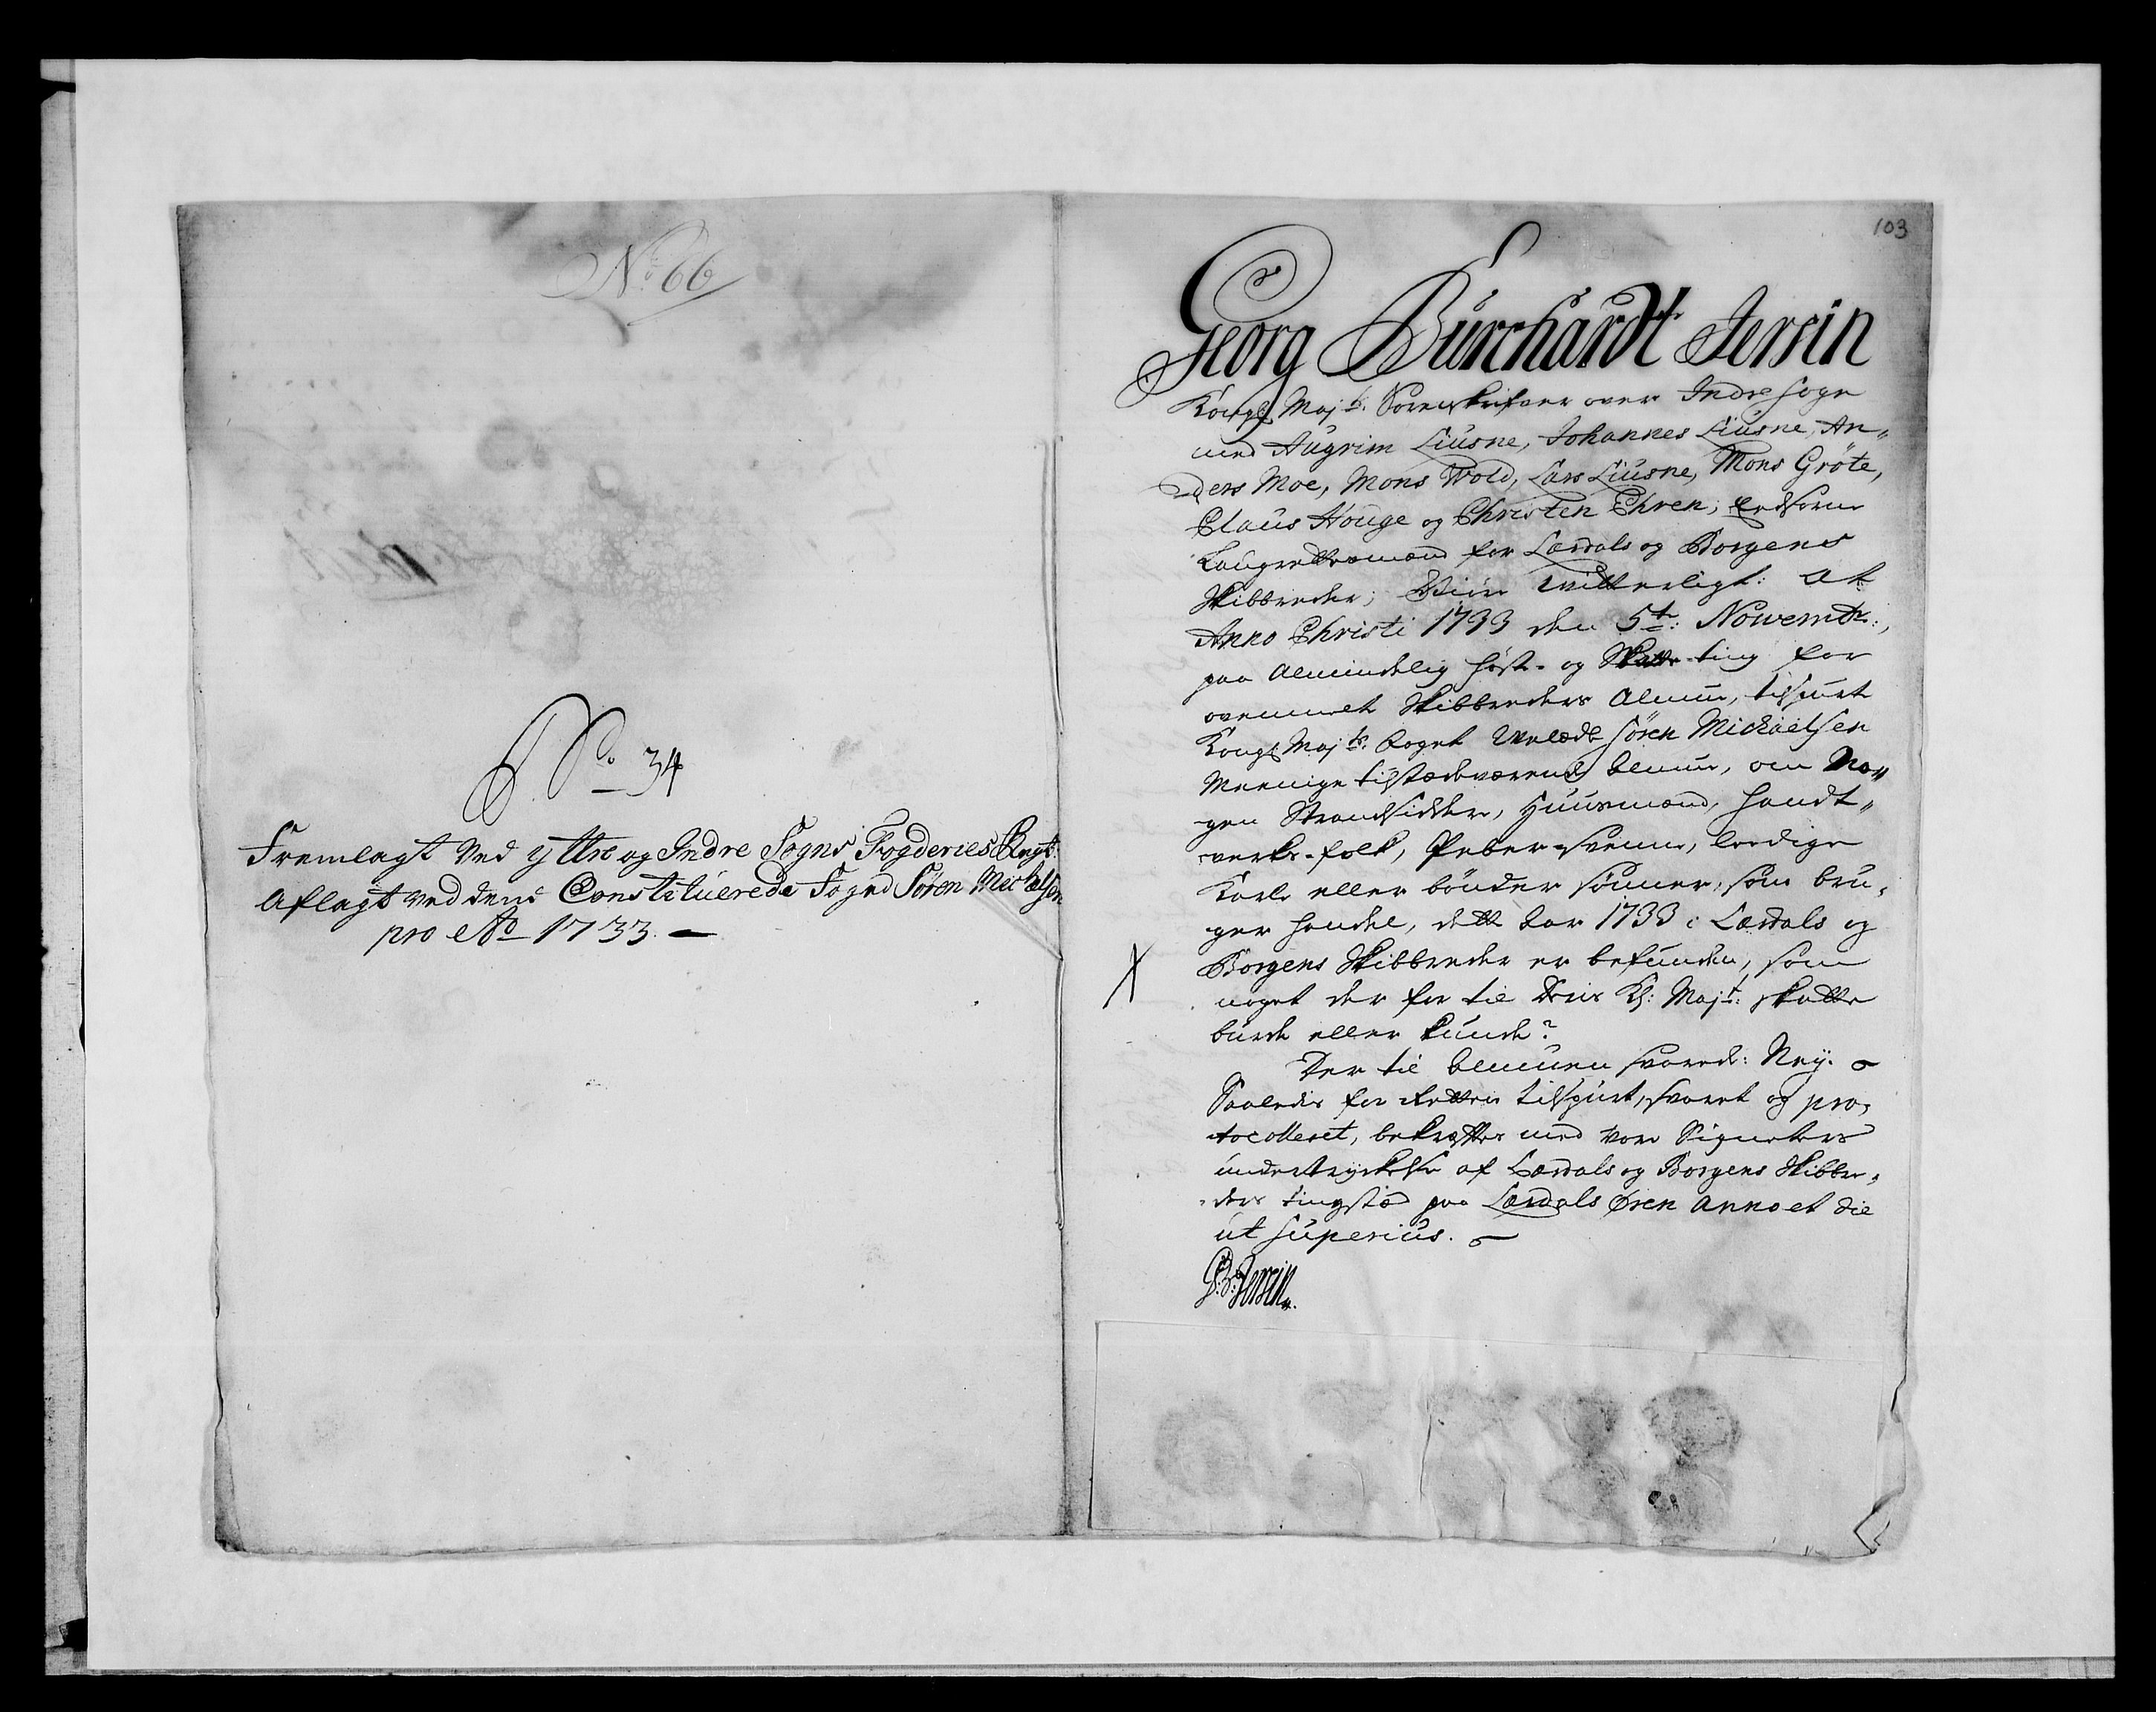 No 66
No 34
Fremlagt Ved Yttre og Indre Sogns Fogderies Regt:
Aflagt ved dend Constituerede Foged Søren Michelsen
pro Ao 1733.
103
Georg Burchardt Jersin
Kongl Majts. Sorenskrifver over Indre Sogn
med Augrim Liusne, Johannes Liusne, An„
ders Moe, Mons Wold, Lars Liusne, Mons Gröte,
Claus Houge og Christen Ehren; Eedsorne
Laugrettesmænd for Lærdals og Borgens
Skibbreder; Giør witterligt: At
Anno Christi 1733 den 5te: Nowembr:,
paa Almindelig Høst- og Skatte-ting for
ovenmelte Skibbreders Almue, tilspurte
Kongl Majts. Foget Velædle Sören Michaelsen
Meenige tilstædeværende Almue, om No„
gen Strandsidder, Huusmænd, Handt„
verks-folk, Peber-svenne, leedige
Karle eller bönder sönner, som bru„
ger Handel, dette Aar 1733 i Lærdals og
Borgens Skibbreder er befunden, som
noget der for til Deris Kl: Majt: skatte
burde eller kunde?
Der til Almuen svarede: Ney.
Saaledis for Retten tilspurt, svaret og pro„
tocolleret, bekræfter med vore Signeters
undertrykelse af Lærdals og Borgens Skibbre„
ders tingstæd paa Lærdals Øren Anno et die
ut superius.
G: B: Jersin.